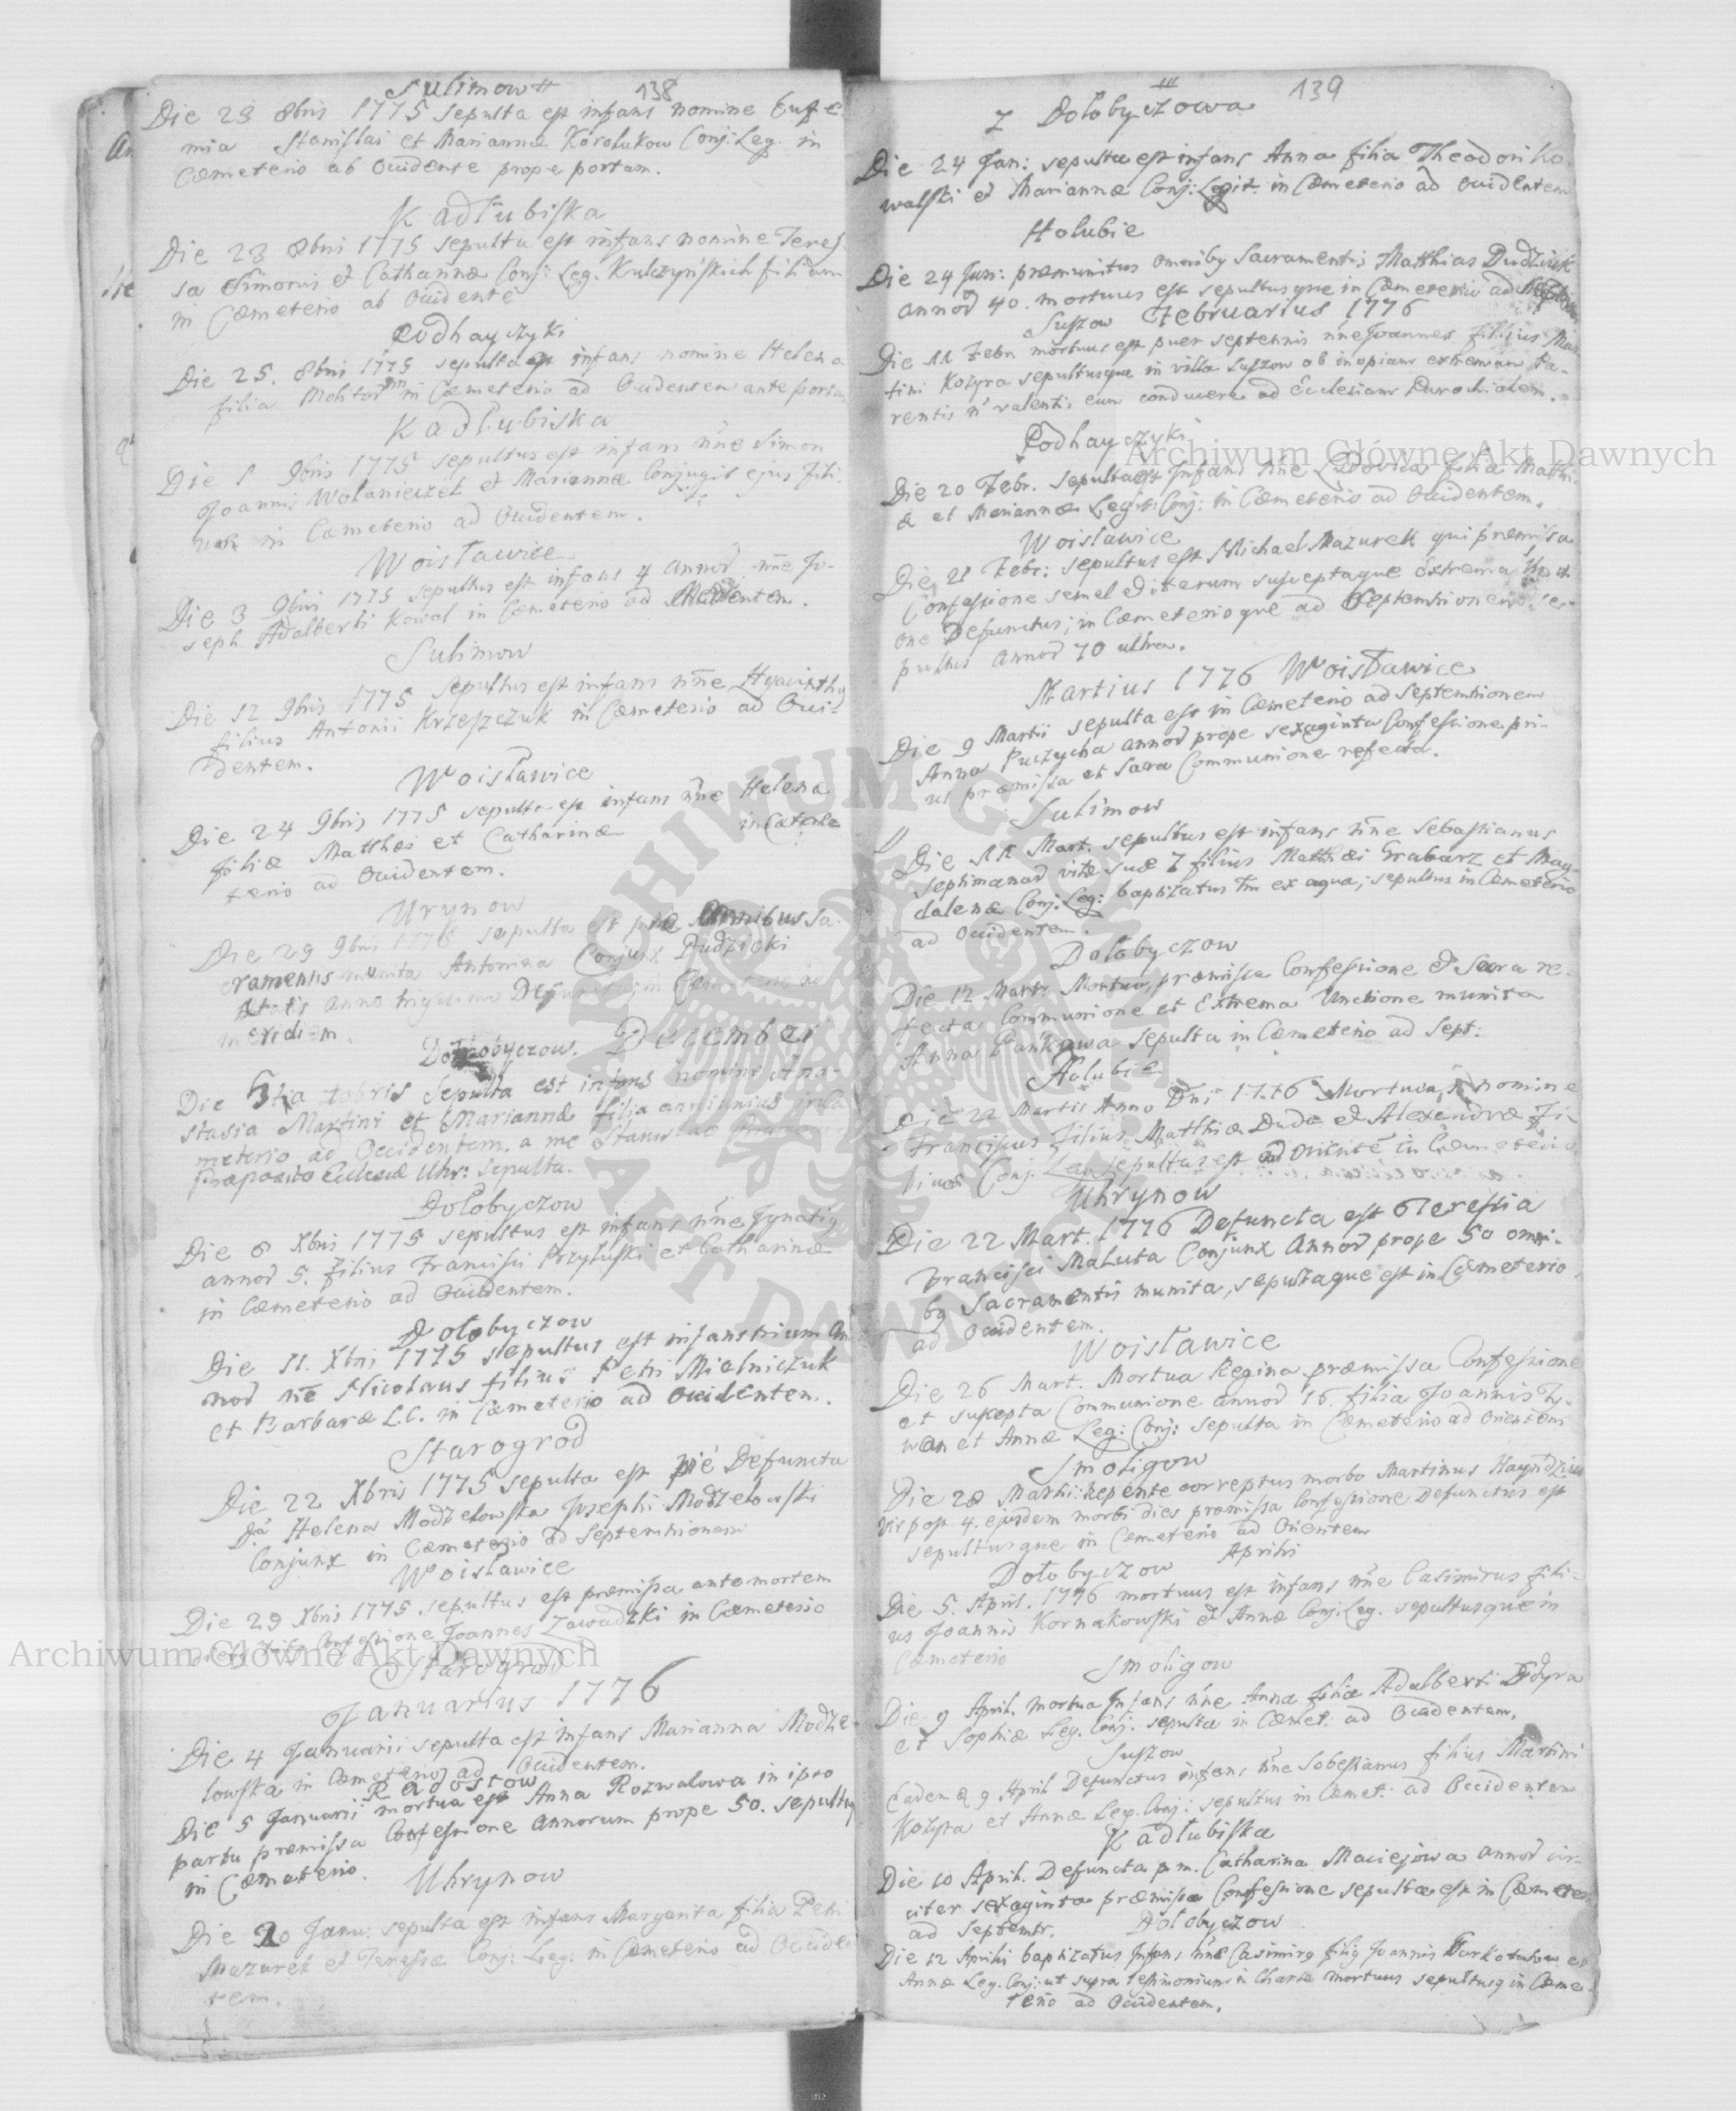 Sulimow
138
Die 23 8bris 1775 sepulta est infans nomine Eufe-
mia Stanislai et Mariannæ Korolukow Conj: Leg. in
Cæmeterio ab Occidente prope portam.
Kadłubiska
Die 23 8bris 1775 sepulta est infans nomine Teres
sa Simonis et Catharinæ Conj: Leg. Kulczyńskich filiam
in Cæmeterio ab Occidente
Podhayczyki
Die 25. 8bris 1775 sepulta est infans nomine Helena
filia in Cæmeterio ad Occidentem ante portam
Kadłubiska
Die 1 9bris 1775 sepultus est infans nne Simon
Joannis Wolanieczek et Mariannæ Conjugis ejus fili
in Cæmeterio ad Occidentem.
Woisławice
Die 3 9bris 1775 sepultus est infans 4 annor nne Jo-
seph Adalberti Kowal in Cæmeterio ad
Sulimow
Die 12 9bris 1775 sepultus est infans nne Hyacinthg
filius Antonii Krzeszczuk in Cæmeterio ad Occi-
dentem.
Woisławice
Die 24 9bris 1775 sepulta est infans nne Helena
filiæ Matthæi et Catharinæ in Cæme
terio ad Occidentem.
Urynow
Die 29 9bris 177 sepulta est præ omnibus Sa-
cramentis munita Antonina Conjunx Dudzicki
Ætatis anno trigesimo Defuncta in ad
meridiem.
Dołobyczow. December
Die 5ta xbris Sepulta est infans nomine Ana-
stasia Martini et Mariannæ filia in Cæ
meterio ad Occidentem. a me Stanislao
Præposito Ecclesiæ Uhr: sepulta.
Dołobyczow
Die 6 Xbris 1775 sepultus est infans nne Ignatig
annor 5. filius Francisci Przyłuski et Catharinæ
in Cæmeterio ad Occidentem.
Dołobyczow
Die 11. Xbris 1775 sepultus est infans trium an
nor nne Nicolaus filius Petri Mielniczuk
et Barbaræ L.C. in Cæmeterio ad Occidentem.
Starogrod
Die 22 Xbris 1775 sepulta est pié Defuncta
Da Helena Modzelowska Josephi Modzelowski
Conjunx in Cæmeterio ad Septemtrionem
Woisławice
Die 29 Xbris 1775 sepultus est præmissa ante mortem
Confessione Joannes Zawadzki in Cæmeterio
Starogrod
Januarius 1776
Die 4 Januarii sepulta est infans Marianna Modze-
lowska in Cæmeterio ad Occidentem.
Radostow
Die 5 Januarii mortua est Anna Rozwalowa in ipso
partu præmissa Confessione annorum prope 50. sepultug
in Cæmeterio.
Uhrynow
Die 20 Janu: sepulta est infans Margarita filia Petri
Mazurek et Teressæ Conj: Leg: in Cæmeterio ad Occiden
tem.
139
z Dołobyczowa
Die 24 Jan: sepulta est infans Anna filia Theodori Ko-
walski et Mariannæ Conj: Legit: in Cæmeterio ad Occidentem
Holubie
Die 24 Jan: præmunitus omniby Sacramentis Matthias Dudziuk
annor 40. mortuus est sepultusque in Cæmeterio ad
Suszow Februarius 1776
Die 11 Febr. mortuus est puer septennis nne Joannes filius Mar
tini Kozyra sepultusque in villa Suszow ob inopiam extremam Pa-
rentis n valentis eum conducere ad Ecclesiam Parochialem.
Podhayczyki
Die 20 Febr. sepulta est Infans nne Ludovica filia Matthi-
æ et Mariannæ Legit: Conj: in Cæmeterio ad Occidentem.
Woislawice
Die 21 Febr: sepultus est Michael Mazurek qui præmissa
Confessione semel & iterum susceptaque extrema
one Defunctus; in Cæmeterioque ad Septemtrionem se-
pultus annor 70 ultra.
Martius 1776 Woisławice
Die 9 Martii sepulta est in Cæmeterio ad Septemtrionem
Anna Puczycha annor prope sexaginta Confessione pri-
us præmissa et Sacra Communione refecta.
Sulimow
Die 11 Mart. sepultus est infans nne Sebastianus
septimanar vitæ suæ 7 filius Matthæi Grabarz et Mag-
dalenæ Conj. Leg: baptizatus tm ex aqua; sepultus in Cæmeterio
ad Occidentem.
Dołobyczow
Die 12 Mart: Mortua, præmissa Confessione & Sacra re-
fecta Communione et Extrema Unctione munita
Anna Pankowa sepulta in Cæmeterio ad Sept:
Holubie
Die 22 Martii Anno Dni 1776 Mortuus, nomine
Franciscus filius Matthiæ Duda et Alexandræ Fi-
lius Conj. Leg sepultus est ad Oriente in Cæmeterio
Uhrynow
Die 22 Mart. 1776 Defuncta est Teressia
Francisci Maluta Conjunx annor prope 50 omni-
bg Sacramentis munita, sepultaque est in Cæmeterio
ad Occidentem.
Woisławice
Die 26 Mart. Mortua Regina præmissa Confessione
et suscepta Communione annor 16. filia Joannis Ty-
wan et Annæ Leg: Conj: sepulta in Cæmeterio ad Orientem
Smoligow
Die 28 Martii: Repente correptus morbo Martinus
vir post 4. ejusdem morbi dies præmissa Confessione Defunctus est
sepultusque in Cæmeterio ad Orientem
Aprilis
Dołobyszow
Die 5. April. 1776 mortuus est infans nne Casimirus fili-
us Joannis Kornakowski et Annæ Conj: Leg. sepultusque in
Cæmeterio
Smoligow
Die 9 April. mortua Infans nne Anna filia Adalberti
et Sophiæ Leg. Conj: sepulta in Cæmet: ad Occidentem.
Suszow
Eadem Ω 9 April Defunctus infans nne Sebestianus filius Martini
Kozyra et Annæ Leg. Conj: sepultus in Cæmet: ad Occidentem
Kadłubiska
Die 10 April. Defuncta p.m. Catharina Maciejowa annor cir-
citer sexaginta præmissa Confessione sepulta est in Cæmeter
ad septemtr.
Dołobyczow
Die 12 Aprilis baptizatus Infans nne Casimirg filig Joannis et
Annæ Leg. Conj: ut supra testimonium in Charta mortuus sepultusq in Cæme-
terio ad Occidentem.
Archiwum Główne Akt Dawnych
Archiwum Główne Akt Dawnych
ARCHIWUM GŁÓWNE
AKT DAWNYCH